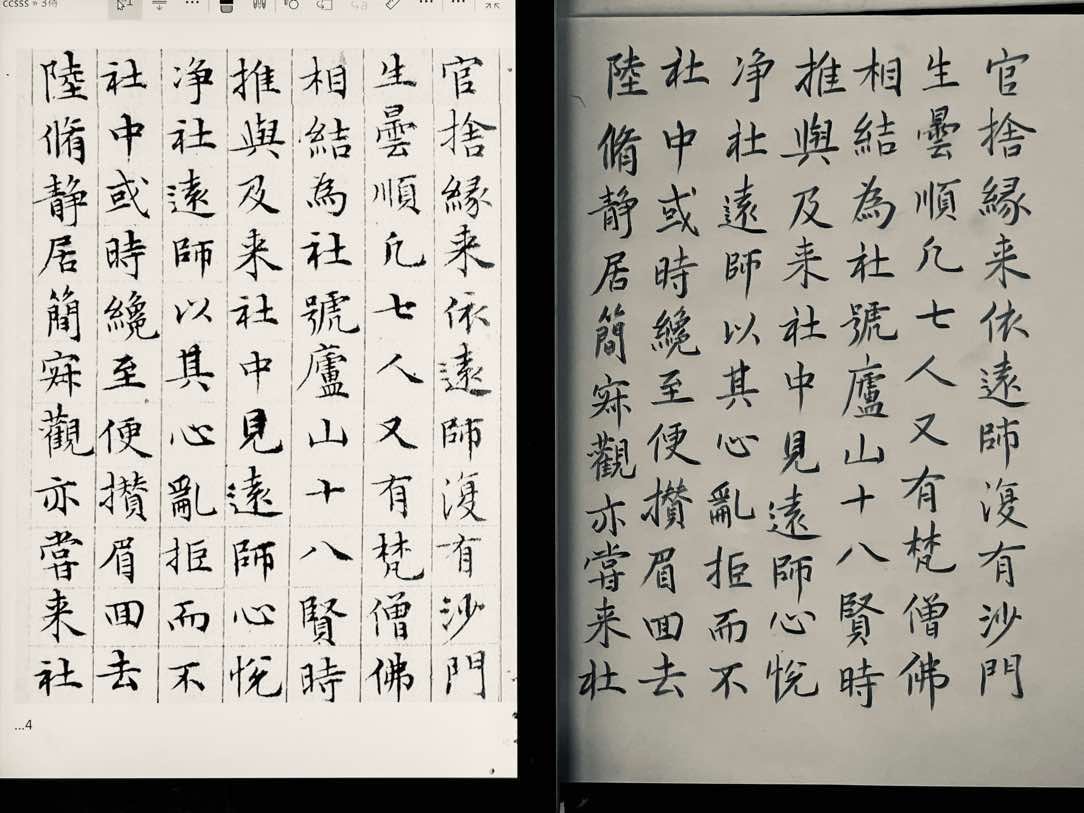 ccsss » 3倍
官捨縁来依遠師復有沙門
生曇順凡七人又有梵僧佛
相結為社號廬山十八賢時
推與及来社中見遠師心悅
净社遠師以其心亂拒而不
社中或時纔至便攢眉囬去
陸脩静居簡寂觀亦嘗来社
...4
官捨縁来依遠師復有沙門
生曇順凡七人又有梵僧佛
相結為社號廬山十八賢時
推與及来社中見遠師心悅
净社遠師以其心亂拒而不
社中或時纔至便攢眉囬去
陸脩静居簡寂觀亦嘗来社